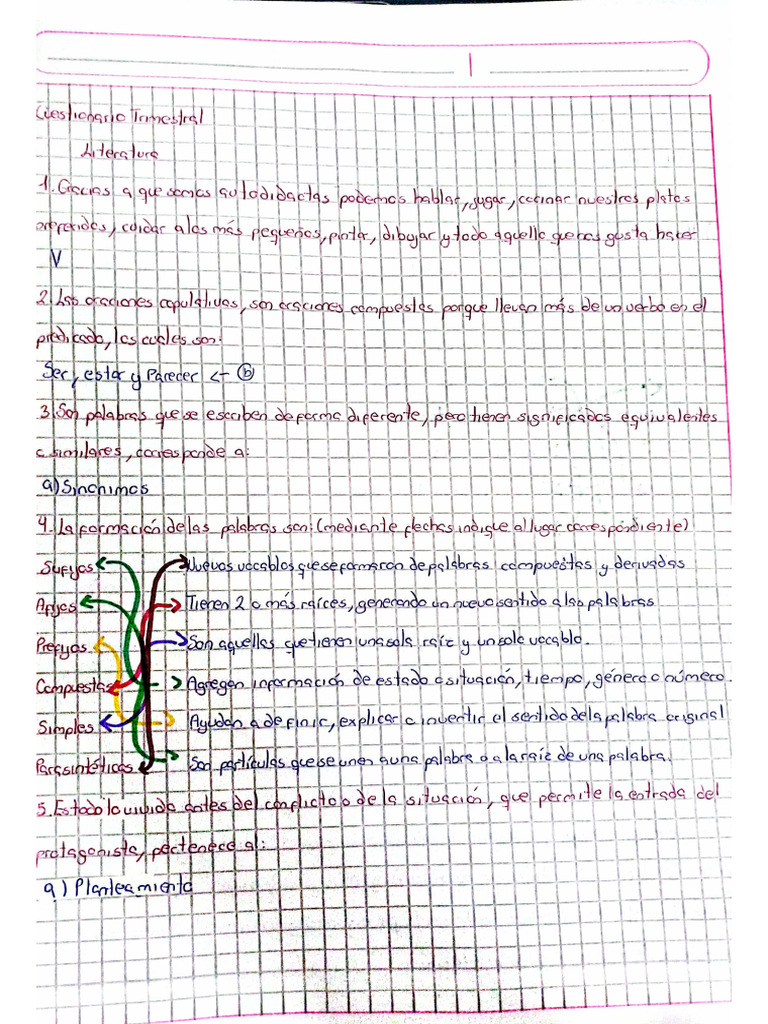 Cuestionario Trimestral
Literatura
1. Gracias a que somos autodidactas podemos hablar, jugar, cocinar nuestros platos
preferidos, cuidar a los más pequeños, pintar, dibujar y todo aquello que nos gusta hacer
V
2. Las oraciones copulativas, son oraciones compuestas porque llevan más de un verbo en el
predicado, los cuales son:
Ser, estar y Parecer <- b
3. Son palabras que se escriben de forma diferente, pero tienen significados equivalentes
o similares, corresponde a:
a) Sinónimos
4. La formación de las palabras son: (mediante flechas indique al lugar correspondiente)
Sufijos Nuevos vocablos que se formaron de palabras compuestas y derivadas
Afijos Tienen 2 o más raíces, generando un nuevo sentido a las palabras
Prefijos Son aquellas que tienen una sola raíz y un solo vocablo.
Compuestas Agregan información de estado o situación, tiempo, género o número.
Simples Ayudan a definir, explicar o invertir el sentido de la palabra original
Parasintéticas Son partículas que se unen a una palabra o a la raíz de una palabra.
5. Es todo lo vivido antes del conflicto o de la situación, que permite la entrada del
protagonista, pertenece a:
a) Planteamiento